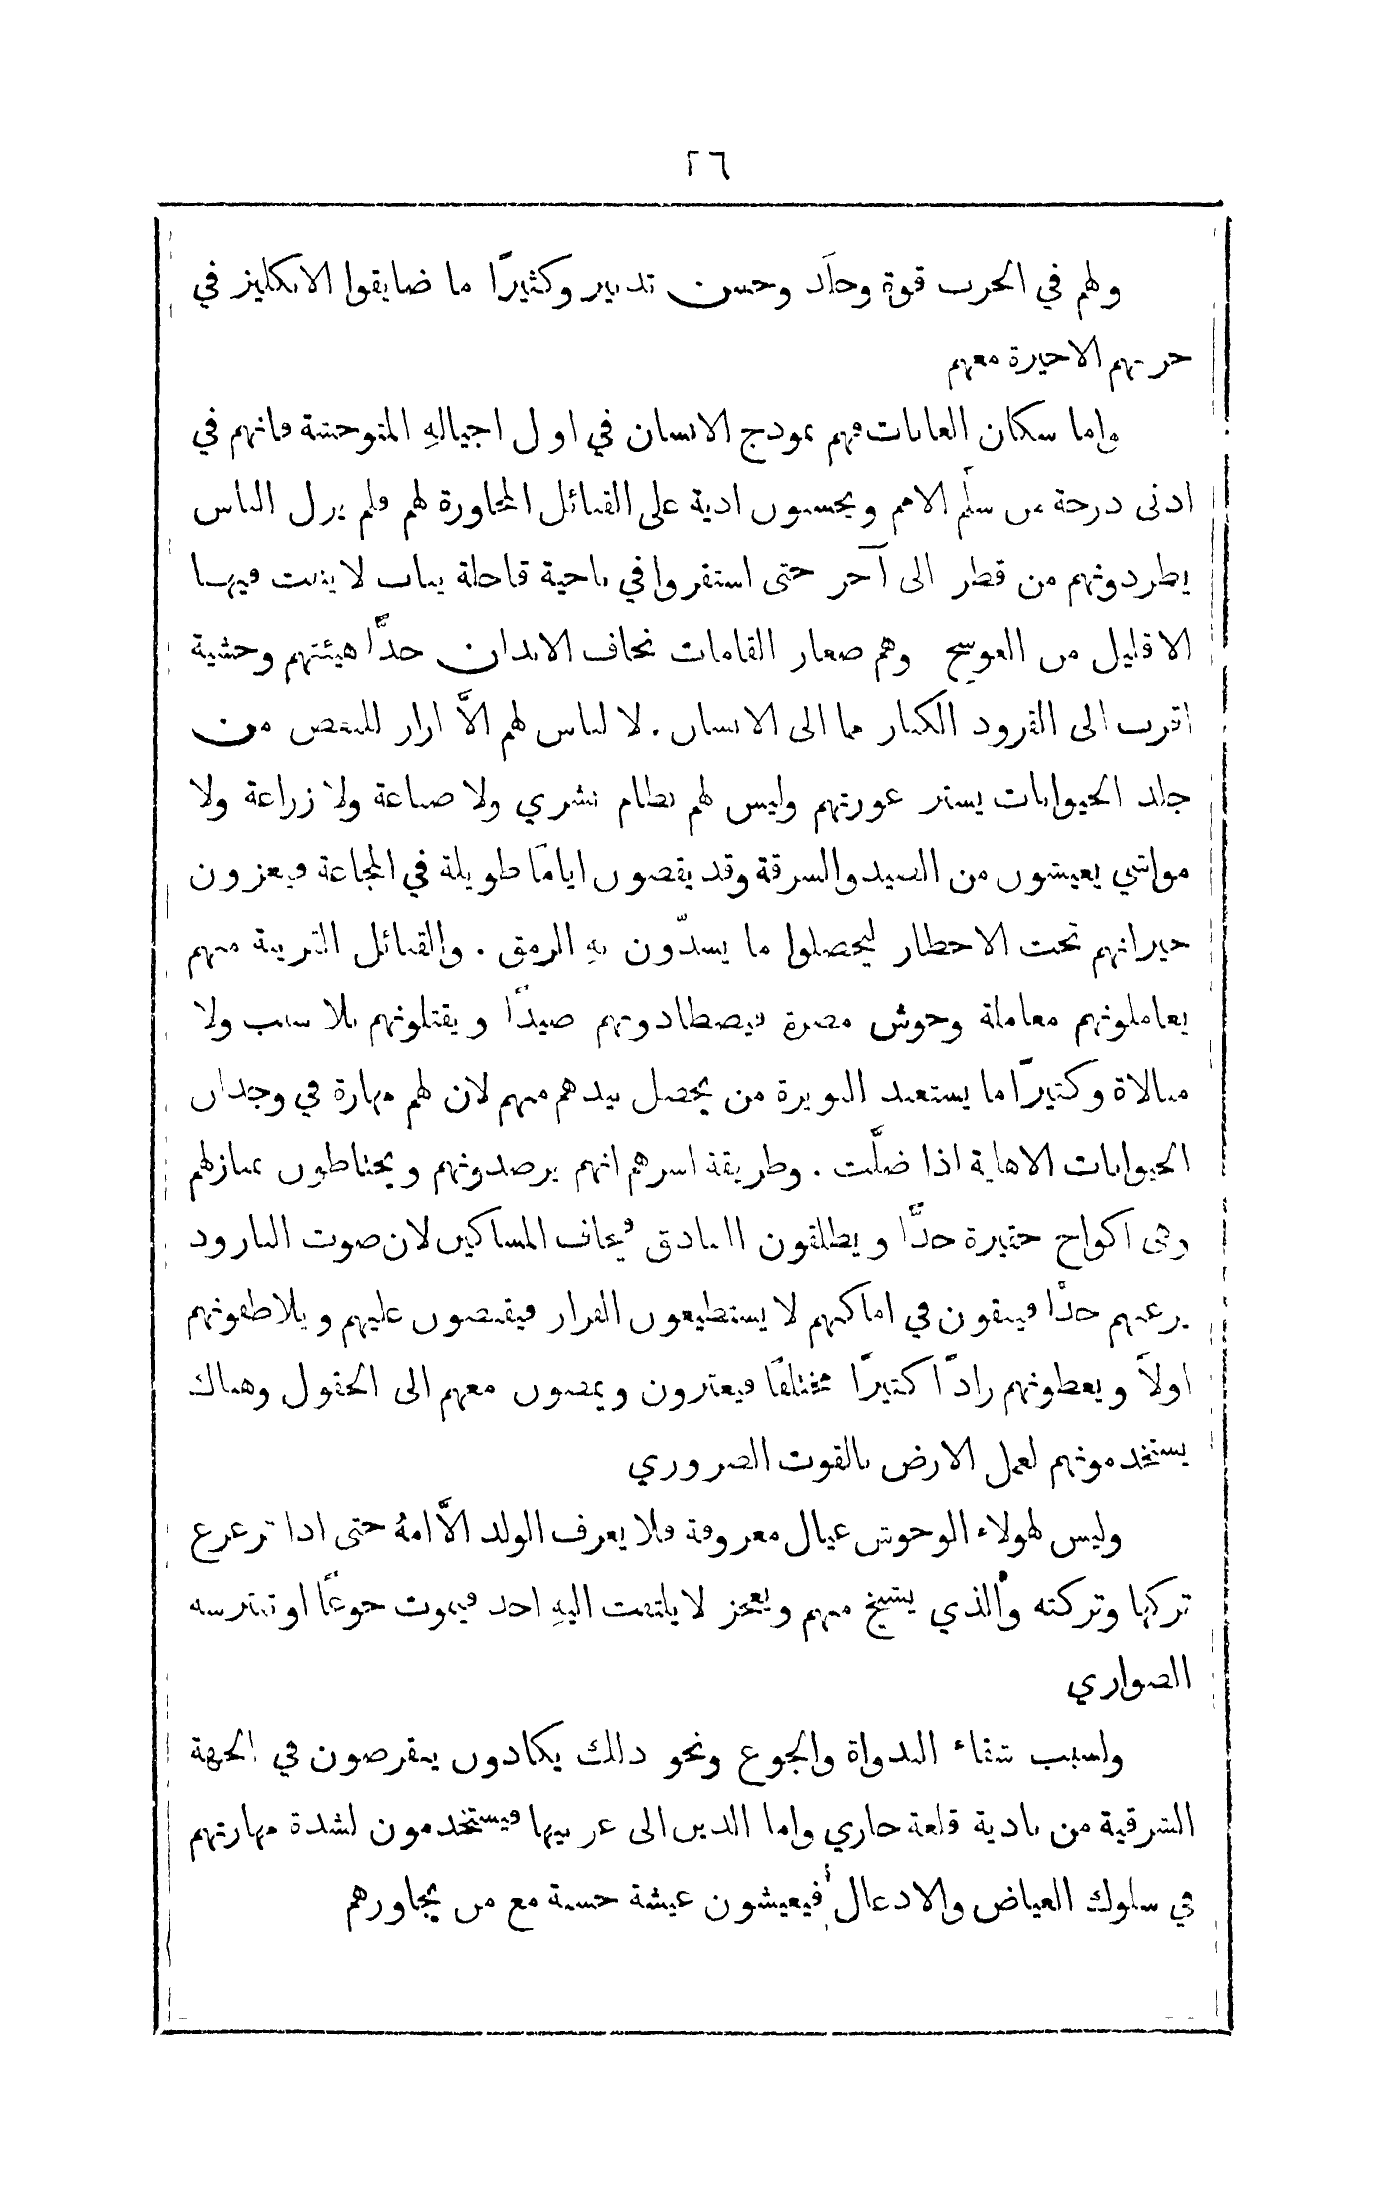 ٢٦
ولهم في الحرب قوة وجلَد وحسن تدبير وكثيرًا ما ضايقوا الانكليز في
حربهم الاخيرة معهم
واما سكان الغابات فهم نموذج الانسان في اول اجيالهِ المتوحشة فانهم في
ادنى درجة من سلَّم الامم ويحسبون اذية على القبائل المجاورة لهم فلم يزل الناس
يطردونهم من قطر الى آخر حتى استقروا في ناحية قاحلة يباب لا ينبت فيها
الا قليل من العوسج وهم صغار القامات نحاف الابدان جدًّا هيئتهم وحشية
اقرب الى القرود الكبار مما الى الانسان. لا لباس لهم الاَّ ازار للبعض من
جلد الحيوانات يستر عورتهم وليس لهم نظام بشري ولا صناعة ولا زراعة ولا
مواشي يعيشون من الصيد والسرقة وقد يقضون ايامًا طويلة في المجاعة فيغزون
جيرانهم تحت الاخطار ليحصلوا ما يسدّون بهِ الرمق. والقبائل القريبة منهم
يعاملونهم معاملة وحوش مضرة فيصطادونهم صيدًا ويقتلونهم بلا سبب ولا
مبالاة وكثيرًا ما يستعبد البويرة من يحصل بيدهم منهم لان لهم مهارة في وجدان
الحيوانات الاهلية اذا ضلَّت. وطريقة اسرهم انهم يرصدونهم ويحتاطون بمنازلهم
وهي اكواخ حقيرة جدًّا ويطلقون البنادق فيخاف المساكين لان صوت البارود
يرعبهم جدًّا فيبقون في اماكنهم لا يستطيعون الفرار فيقبضون عليهم ويلاطفونهم
اولاً ويعطونهم زادًا كثيرًا مختلفًا فيغترون ويمضون معهم الى الحقول وهناك
يستخدمونهم لعمل الارض بالقوت الضروري
وليس لهولاء الوحوش عيال معروفة فلا يعرف الولد الاَّ امهُ حتى اذا ترعرع
تركها وتركته والذي يشيخ منهم ويعجز لا يلتفت اليهِ احد فيموت جوعًا او تفترسه
الضواري
ولسبب شقاء البداوة والجوع ونحو ذلك يكادون ينقرضون في الجهة
الشرقية من بادية قلعة حاري واما الذين الى غربيها فيستخدمون لشدة مهارتهم
في سلوك الغياض والادغال فيعيشون عيشة حسنة مع من يجاورهم